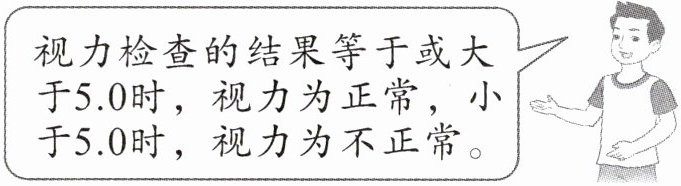 视力检查的结果等于或大
于5.0时，视力为正常，小
于5.0时，视力为不正常。